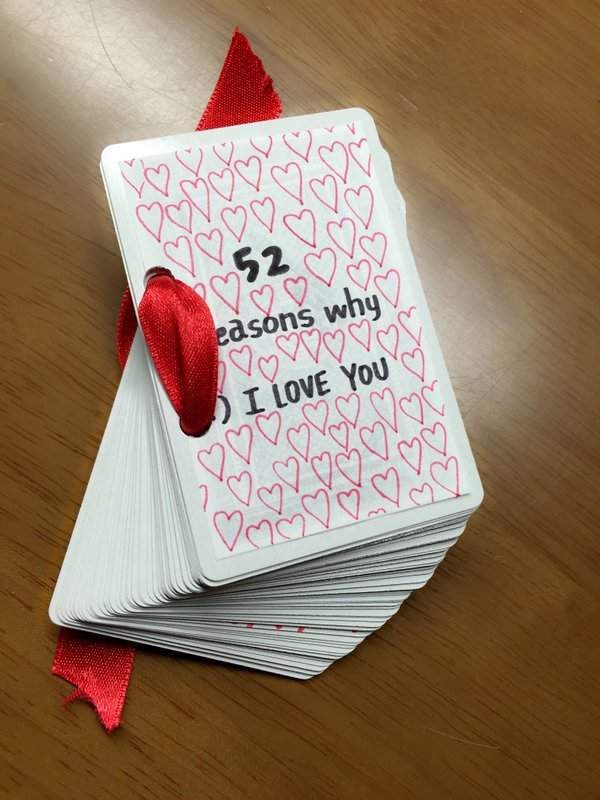 52
easons why
) I LOVE YOU